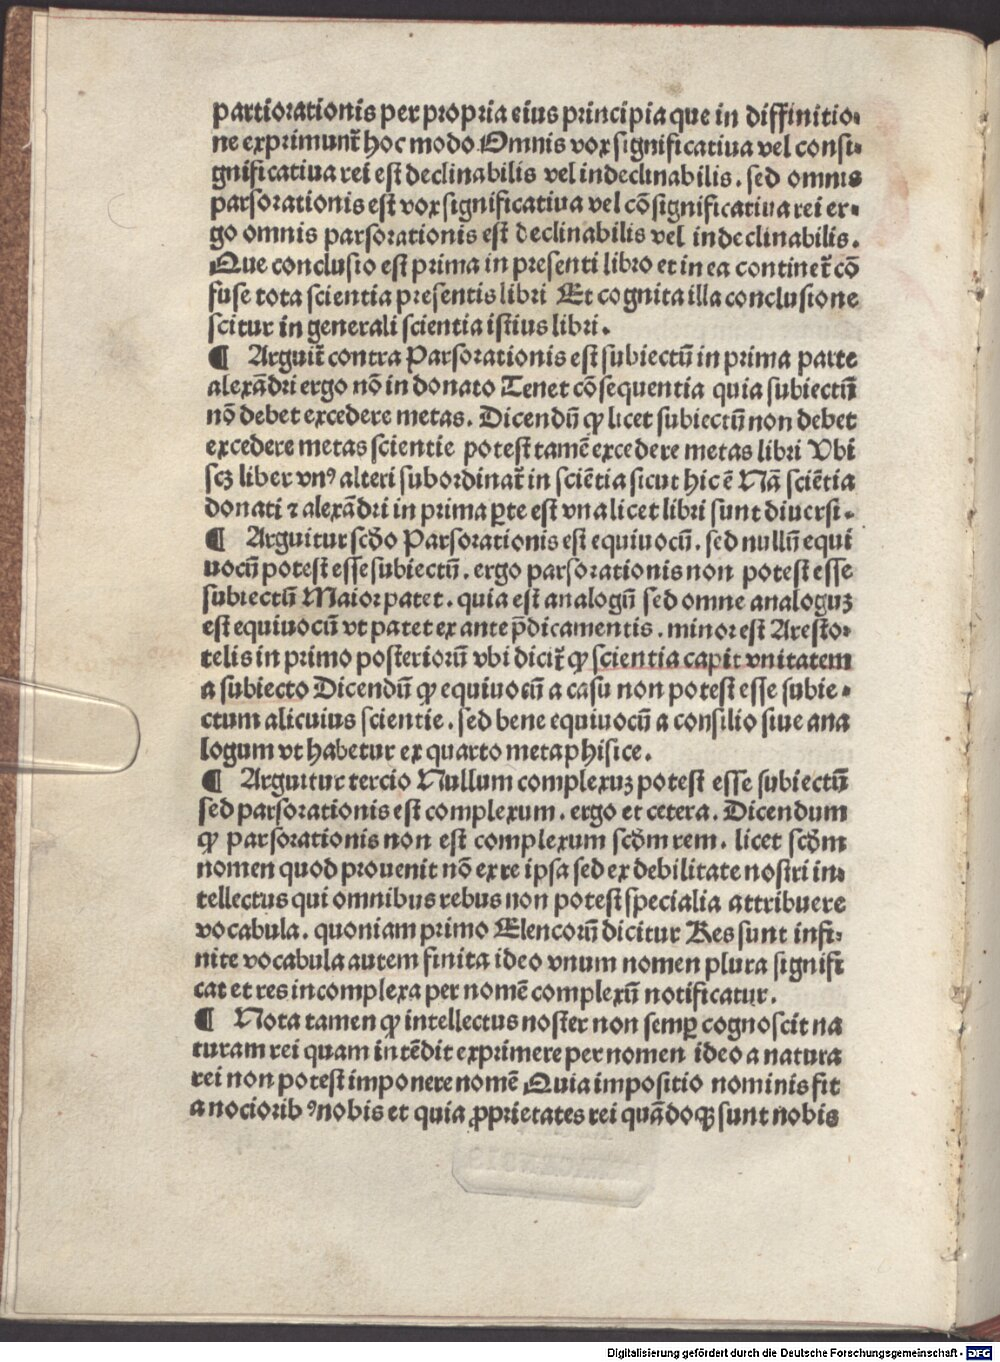 partiorationis per propria eius principia que in diffinitio⸗
ne exprimunt̃ hoc modo Omnis vox significatiua vel consi⸗
gnificatiua rei est declinabilis vel indeclinabilis. sed omnis
parsorationis est vox significatiua vel cõsignificatiua rei er⸗
go omnis parsorationis est declinabilis vel indeclinabilis.
Que conclusio est prima in presenti libro et in ea continet̃ cõ
fuse tota scientia presentis libri Et cognita illa conclusione
scitur in generali scientia istius libri.
¶ Arguit̃ contra Parsorationis est subiectũ in prima parte
alexãdri ergo nõ in donato Tenet cõsequentia quia subiectũ
nõ debet excedere metas. Dicendũ ꝙ licet subiectũ non debet
excedere metas scientie potest tamẽ excedere metas libri Vbi
scꝫ liber vnꝰ alteri subordinat̃ in sciẽtia sicut hic ẽ Nã sciẽtia
donati ⁊ alexãdri in prima ꝑte est vna licet libri sunt diuersi.
¶ Arguitur scďo Parsorationis est equiuocũ. sed nullũ equi
uocũ potest esse subiectũ. ergo parsorationis non potest esse
subiectũ Maior patet. quia est analogũ sed omne analoguꝫ
est equiuocũ vt patet ex ante p̃dicamentis. minor est Aresto⸗
telis in primo posteriorũ vbi dicit̃ ꝙ scientia capit vnitatem
a subiecto Dicendũ ꝙ equiuocũ a casu non potest esse subie⸗
ctum alicuius scientie. sed bene equiuocũ a consilio siue ana
logum vt habetur ex quarto metaphisice.
¶ Arguitur tercio Nullum complexuꝫ potest esse subiectũ
sed parsorationis est complexum. ergo et cetera. Dicendum
ꝙ parsorationis non est complexum scďm rem. licet scďm
nomen quod prouenit nõ ex re ipsa sed ex debilitate nostri in⸗
tellectus qui omnibus rebus non potest specialia attribuere
vocabula. quoniam primo Elencorũ dicitur Res sunt infi⸗
nite vocabula autem finita ideo vnum nomen plura signifi
cat et res incomplexa per nomẽ complexũ notificatur.
¶ Nota tamen ꝙ intellectus noster non semꝑ cognoscit na
turam rei quam intẽdit exprimere per nomen ideo a natura
rei non potest imponere nomẽ Quia impositio nominis fit
a nociorib⁹ nobis et quia ꝓprietates rei quãdoqꝫ sunt nobis
Digitalisierung gefördert durch die Deutsche Forschungsgemeinschaft - DFG